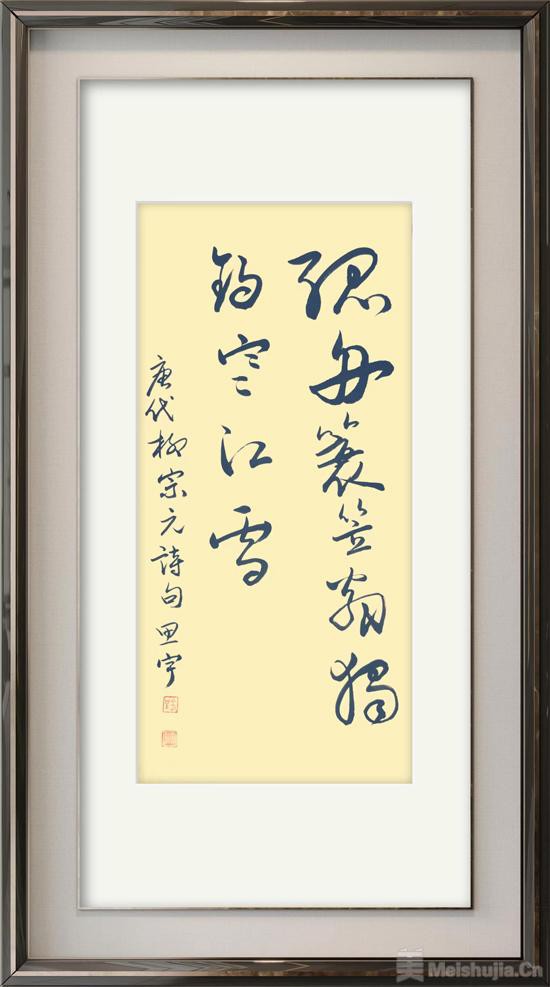 孤舟蓑笠翁独
钓寒江雪
唐代柳宗元詩句思宇
美 Meishujia.Cn